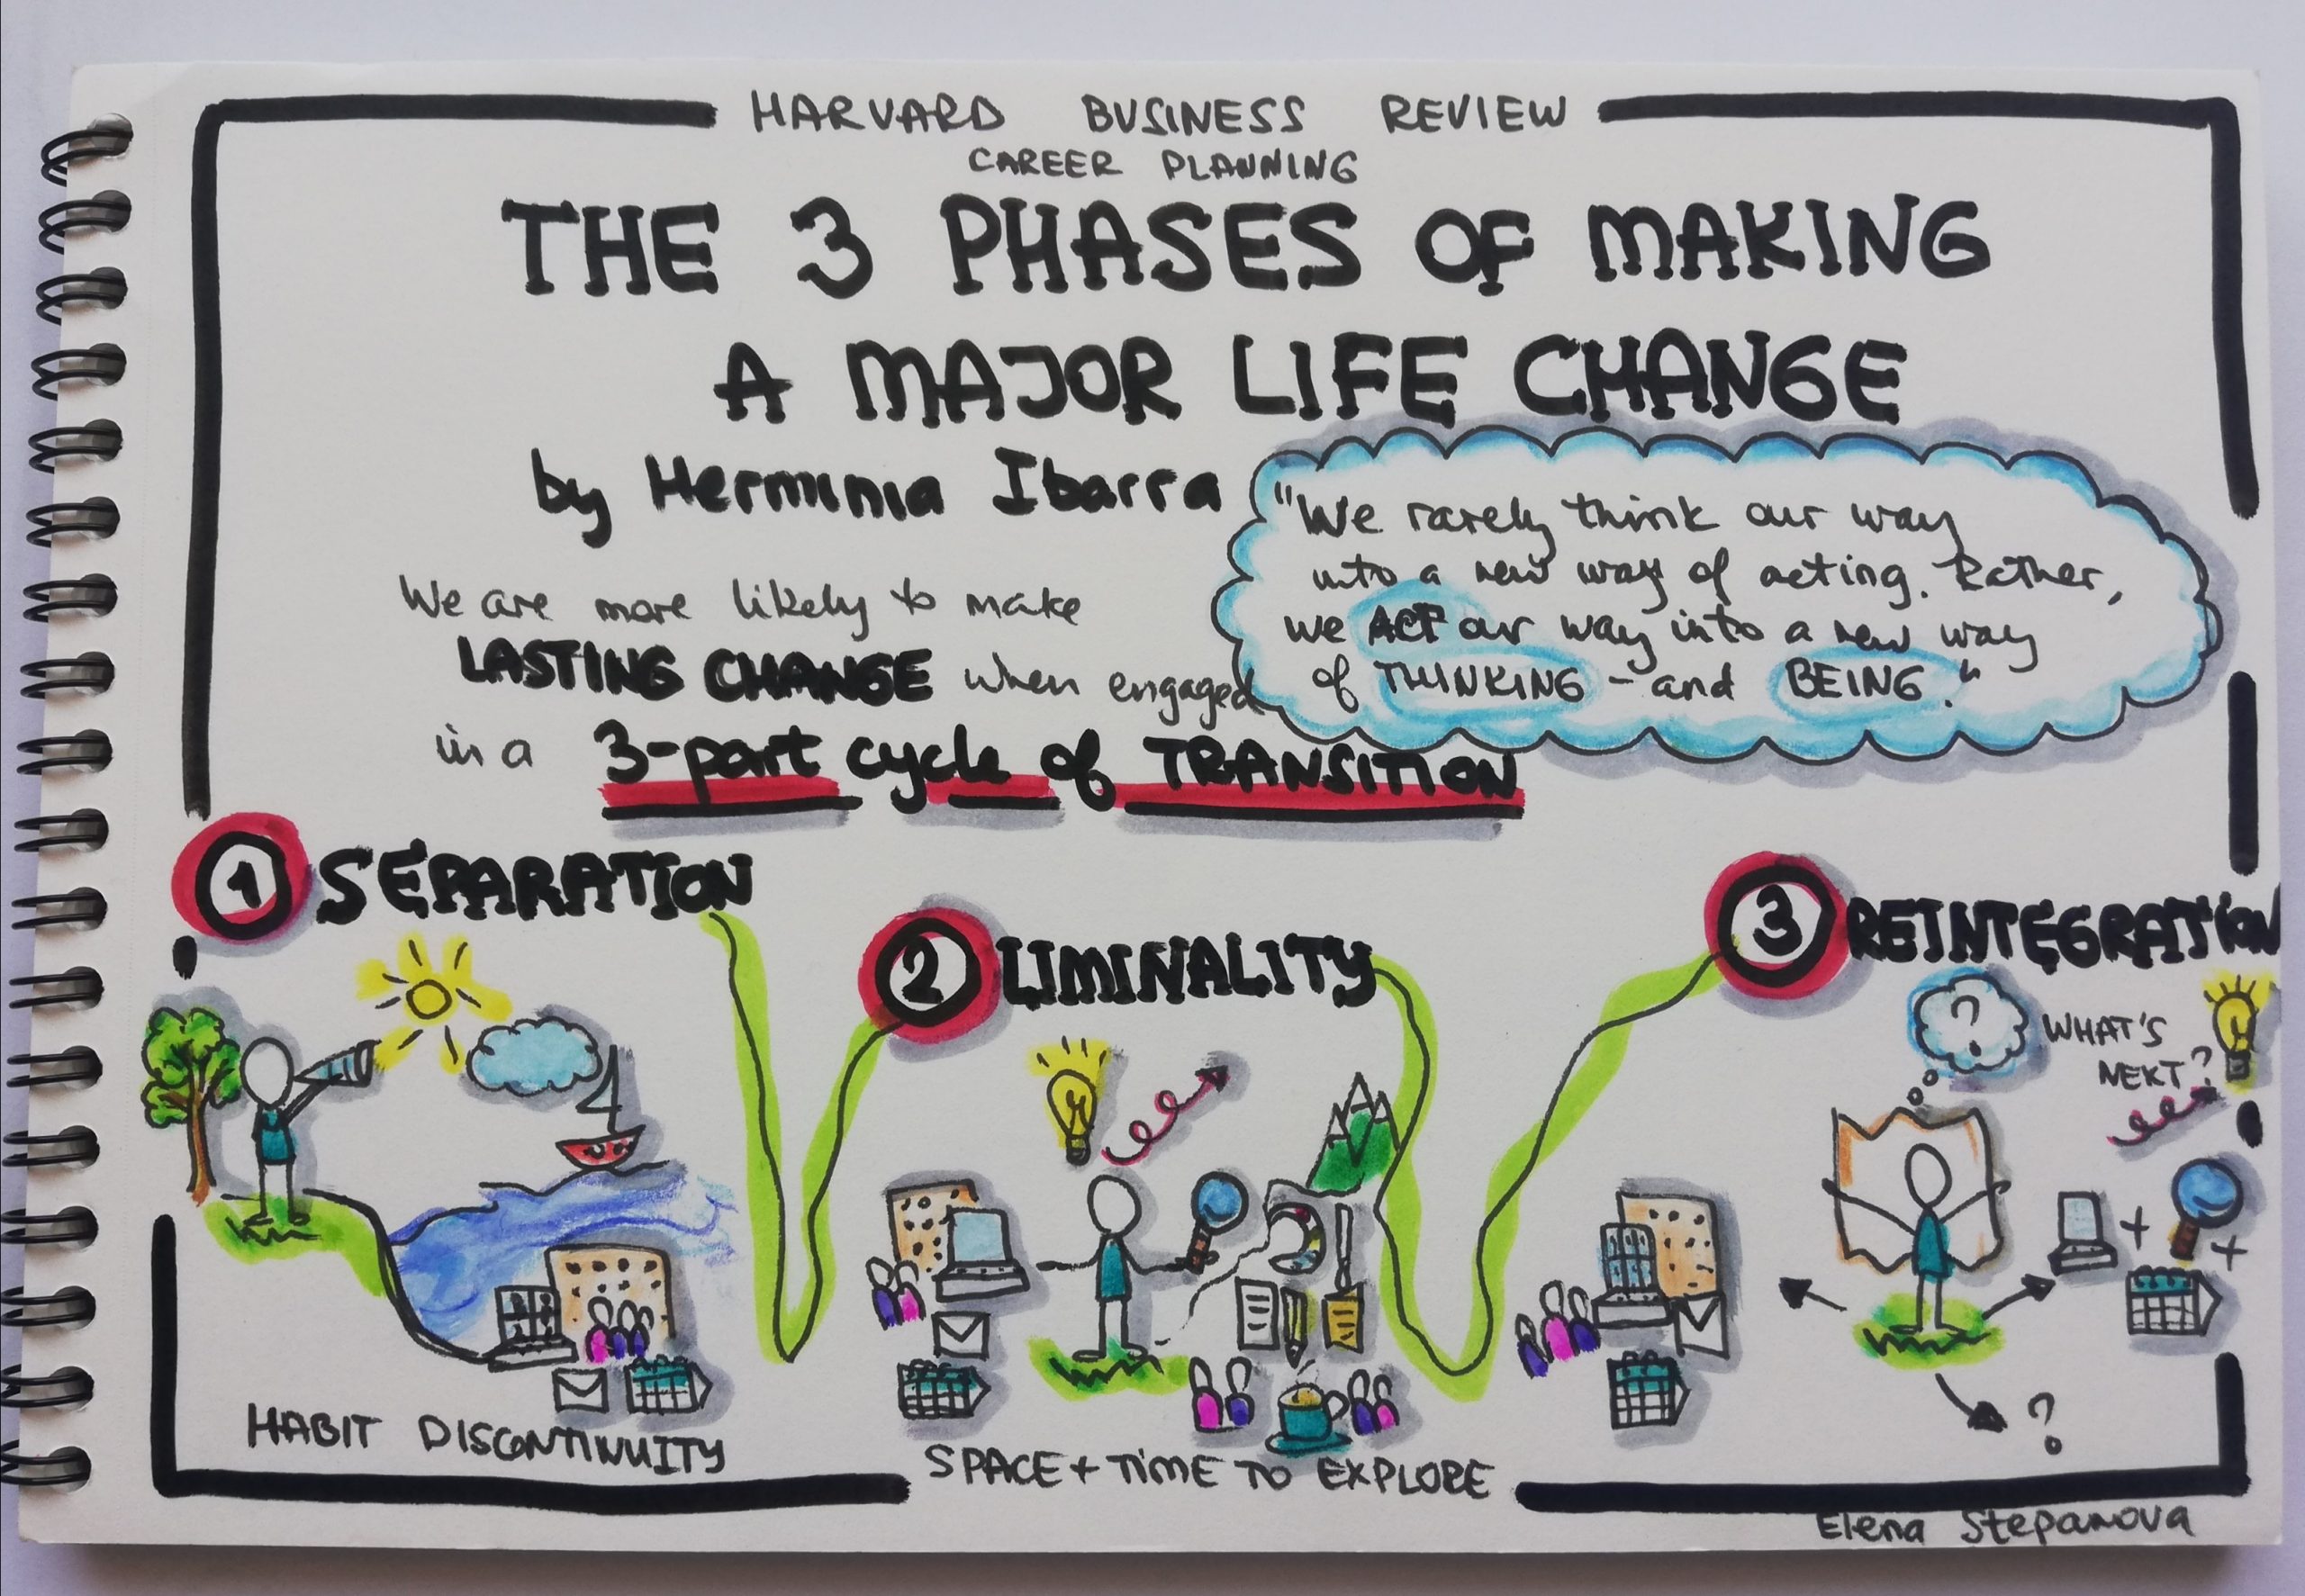 HARVARD BUSINESS REVIEW
CAREER PLANNING
THE 3 PHASES OF MAKING
A MAJOR LIFE CHANGE
by Herminia Ibarra
We are more likely to make
LASTING CHANGE when engaged
in a 3-part cycle of TRANSITION
"We rarely think our way
into a new way of acting. Rather,
we ACT our way into a new way
of THINKING - and BEING."
1 SEPARATION
HABIT DISCONTINUITY
2 LIMINALITY
SPACE + TIME TO EXPLORE
3 REINTEGRATION
?
WHAT'S
NEXT?
+
+
?
Elena Stepanova